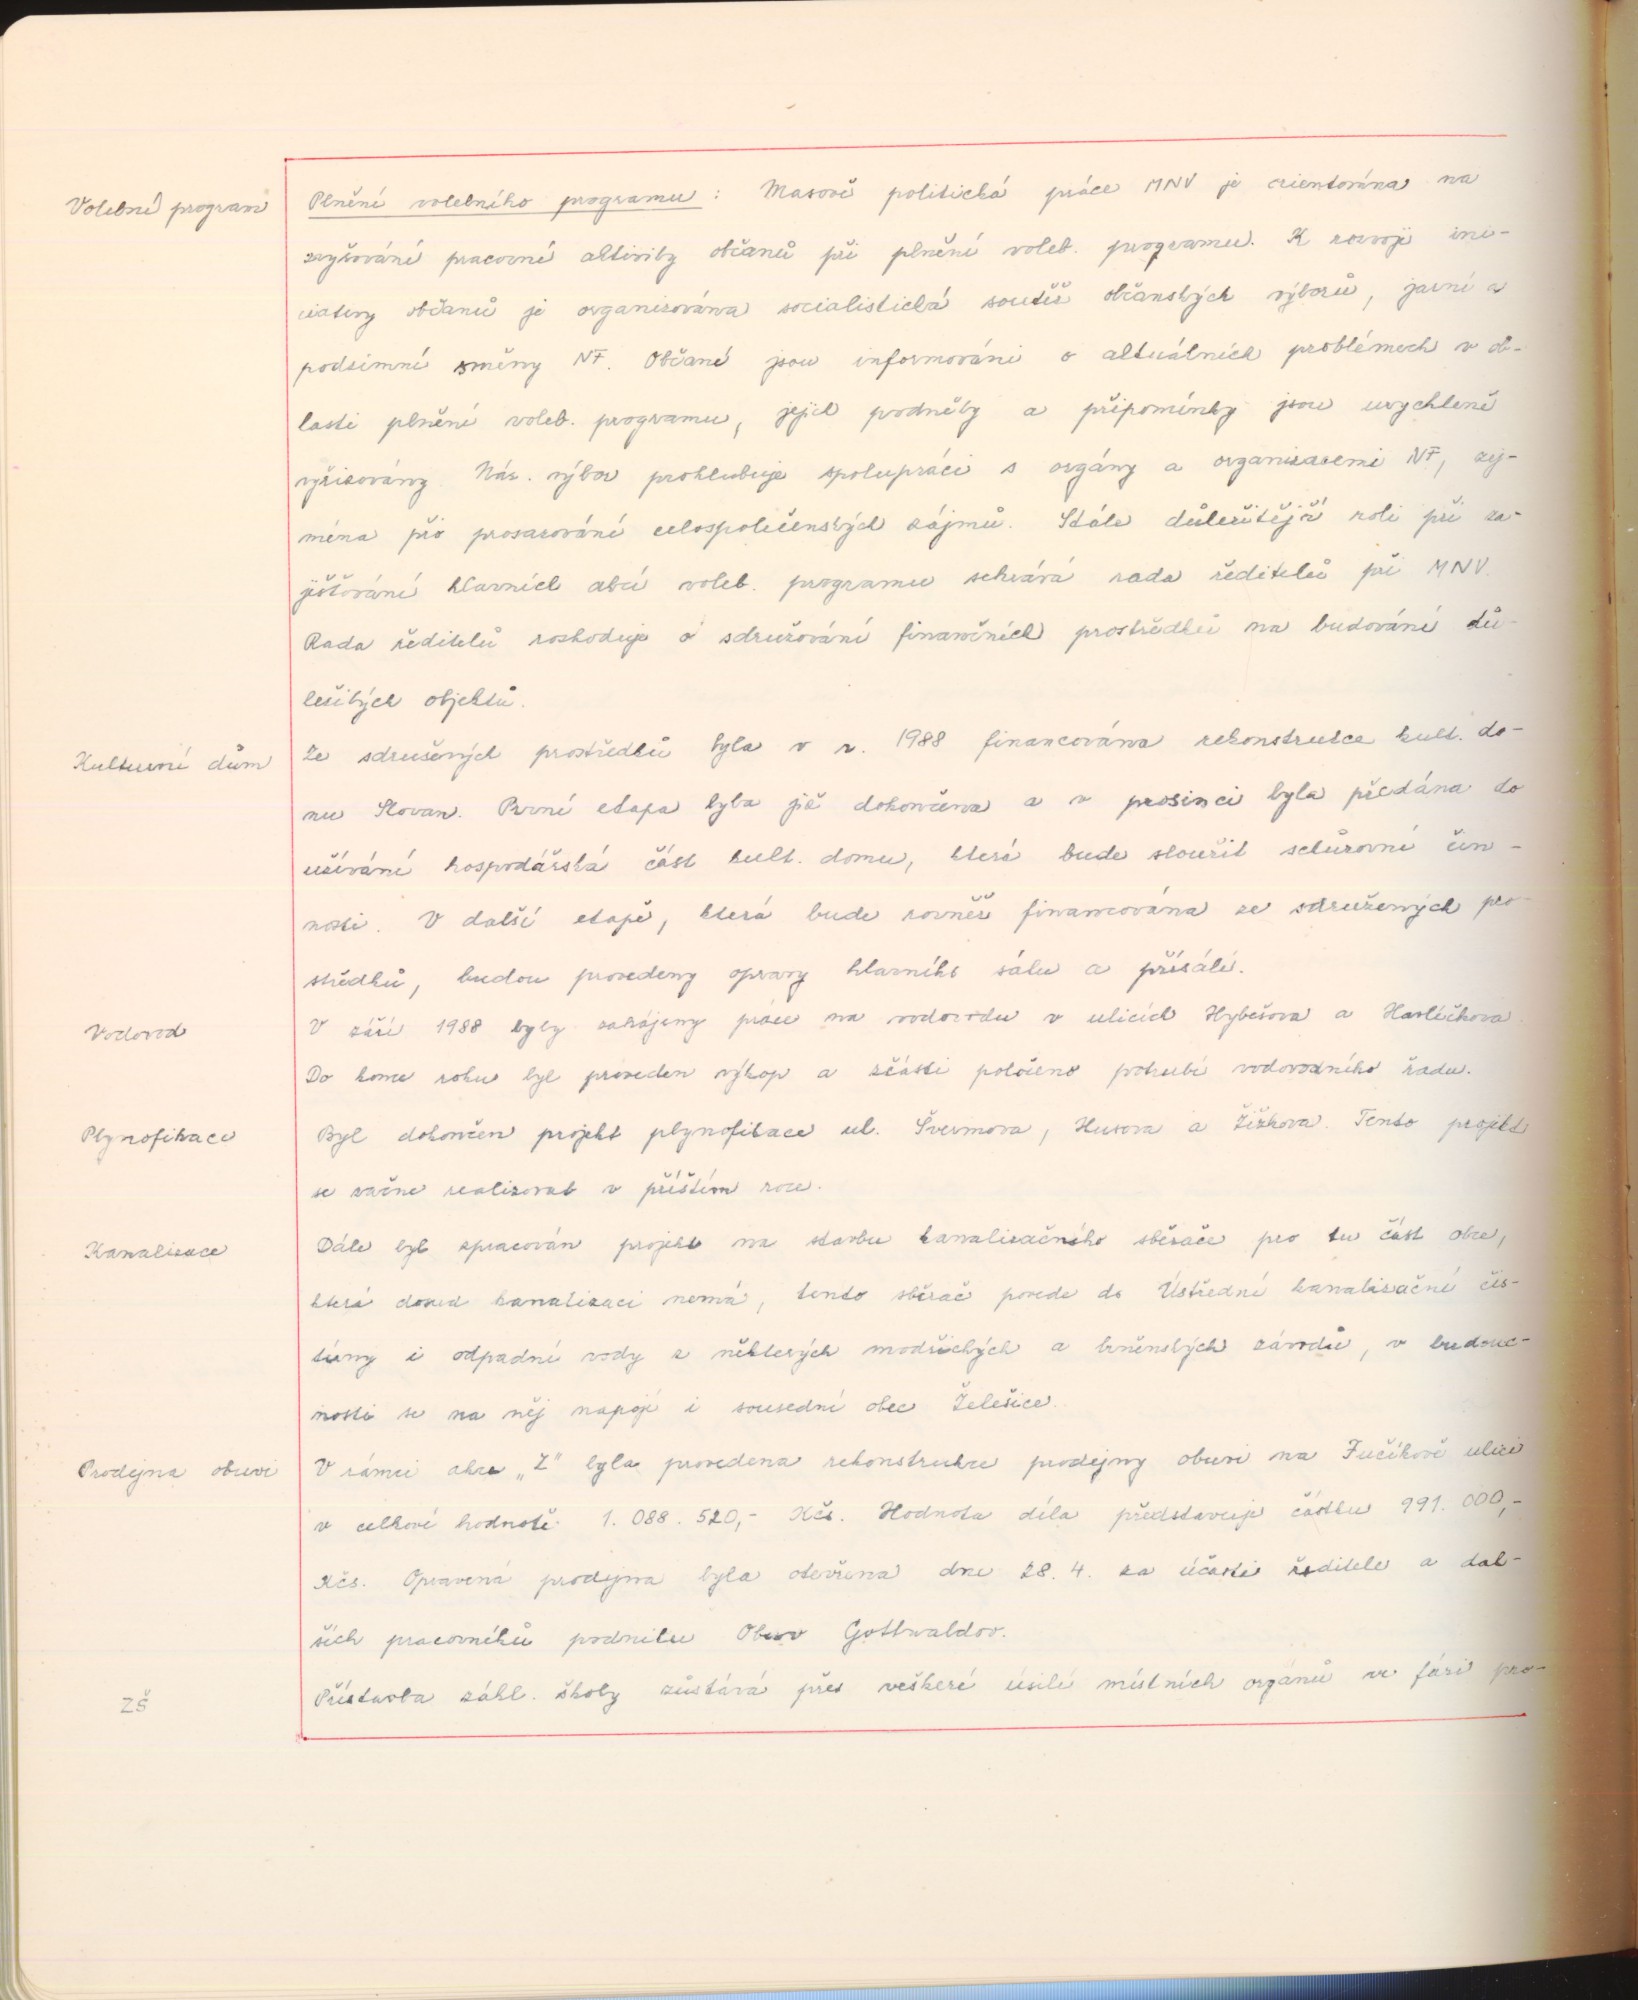 Volební program
Plnění volebního programu : Masově politická práce MNV je orientována na
zvyšování pracovní aktivity občanů při plnění voleb. programu. K rozvoji ini-
ciativy občanů je organizována socialistická soutěž občanských výborů, jarní a
podzimní směny NF. Občané jsou informováni o aktuálních problémech v ob-
lasti plnění voleb. programu, jejich podněty a připomínky jsou urychleně
vyřizovány. Nár. výbor prohlubuje spolupráci s orgány a organizacemi NF, zej-
ména při prosazování celospolečenských zájmů. Stále důležitější roli při za-
jišťování hlavních akcí voleb. programu sehrává rada ředitelů při MNV.
Rada ředitelů rozhoduje o sdružování finančních prostředků na budování dů-
ležitých objektů.
Kulturní dům
Ze sdružených prostředků byla v r. 1988 financována rekonstrukce kult. do-
mu Slovan. První etapa byla již dokončena a v prosinci byla předána do
užívání hospodářská část kult. domu, která bude sloužit schůzovní čin-
nosti. V další etapě, která bude rovněž financována ze sdružených pro-
středků, budou provedeny opravy hlavního sálu a přísálí.
Vodovod
V září 1988 byly zahájeny práce na vodovodu v ulicích Hybešova a Havlíčkova.
Do konce roku byl proveden výkop a zčásti položeno potrubí vodovodního řadu.
Plynofikace
Byl dokončen projekt plynofikace ul. Švermova, Husova a Žižkova. Tento projekt
se začne realizovat v příštím roce.
Kanalizace
Dále byl zpracován projekt na stavbu kanalizačního sběrače pro tu část obce,
která dosud kanalizaci nemá, tento sběrač povede do Ústřední kanalizační čis-
tírny i odpadní vody z některých modřických a brněnských závodů, v budouc-
nosti se na něj napojí i sousední obec Želešice.
Prodejna obuvi
V rámci akce „Z" byla provedena rekonstrukce prodejny obuvi na Fučíkově ulici
v celkové hodnotě 1. 088. 520,- Kčs. Hodnota díla představuje částku 991. 000,-
Kčs. Opravená prodejna byla otevřena dne 28. 4. za účasti ředitele a dal-
ších pracovníků podniku Obuv Gottwaldov.
ZŠ
Přístavba zákl. školy zůstává přes veškeré úsilí místních orgánů ve fázi pro-